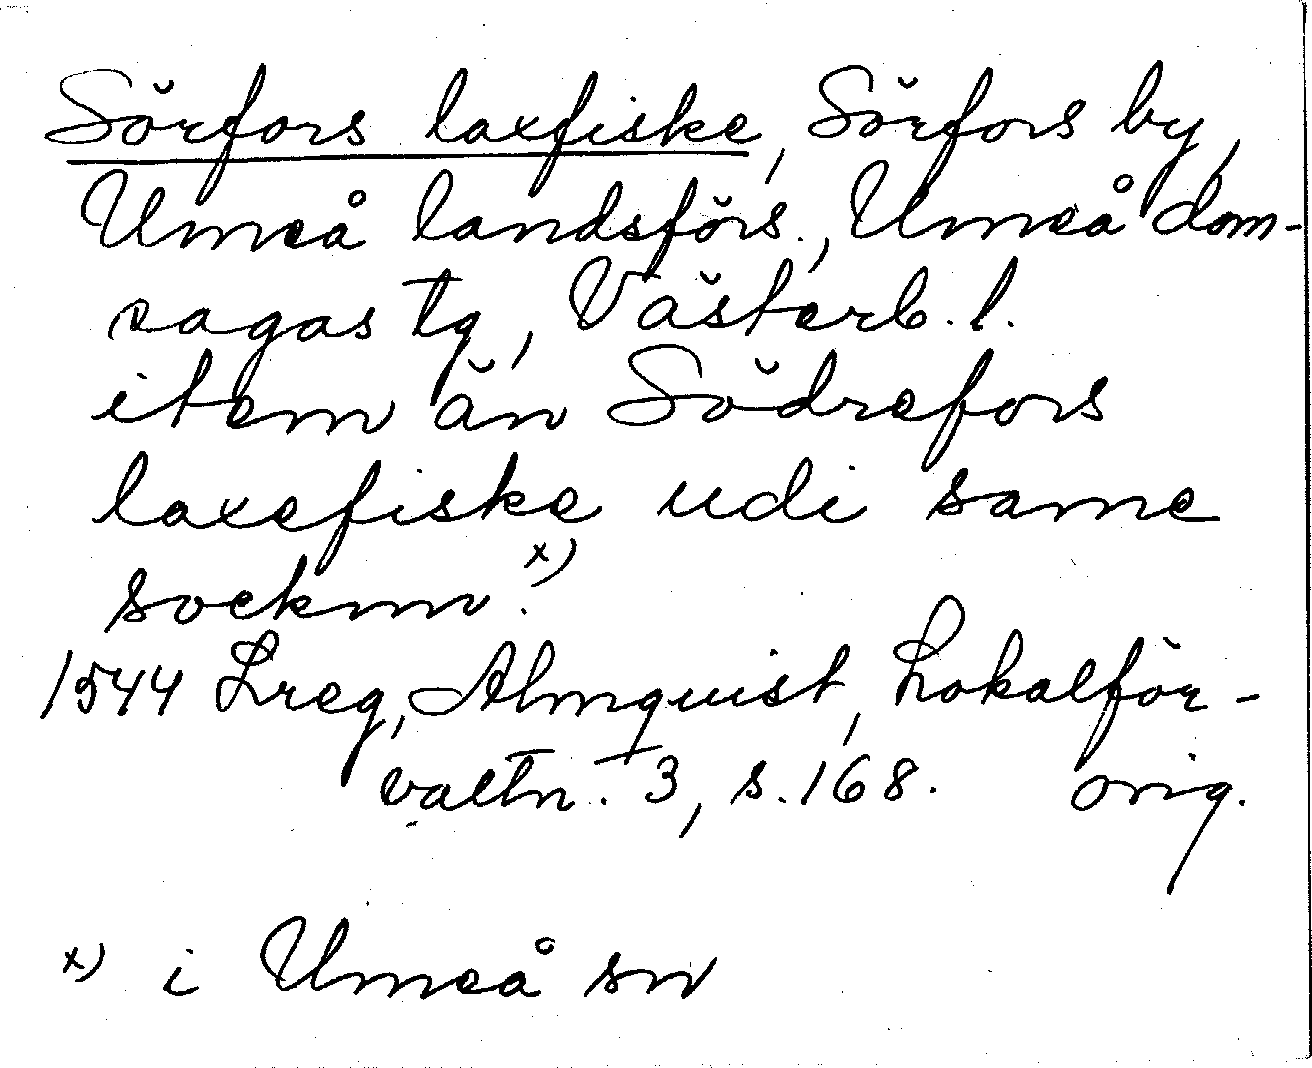 Sörfors laxfiske, Sörfors by,
Umeå landsförs., Umeå dom-
sagas tg, Västerb. l.
item än Södrefors
laxefiske udi same
socknn.x)
1544 Lreg, Almquist, Lokalför-
valtn. 3, s. 168. orig.
x) i Umeå sn